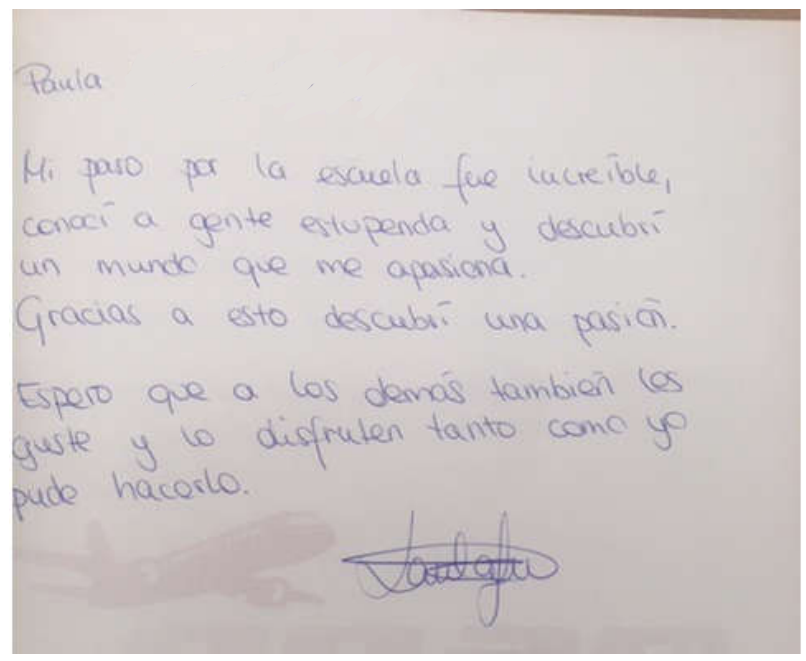 Paula
Mi paso por la escuela fue increíble,
conocí a gente estupenda y descubrí
un mundo que me apasiona.
Gracias a esto descubrí una pasión.
Espero que a los demás también les
guste y lo disfruten tanto como yo
pude hacerlo.